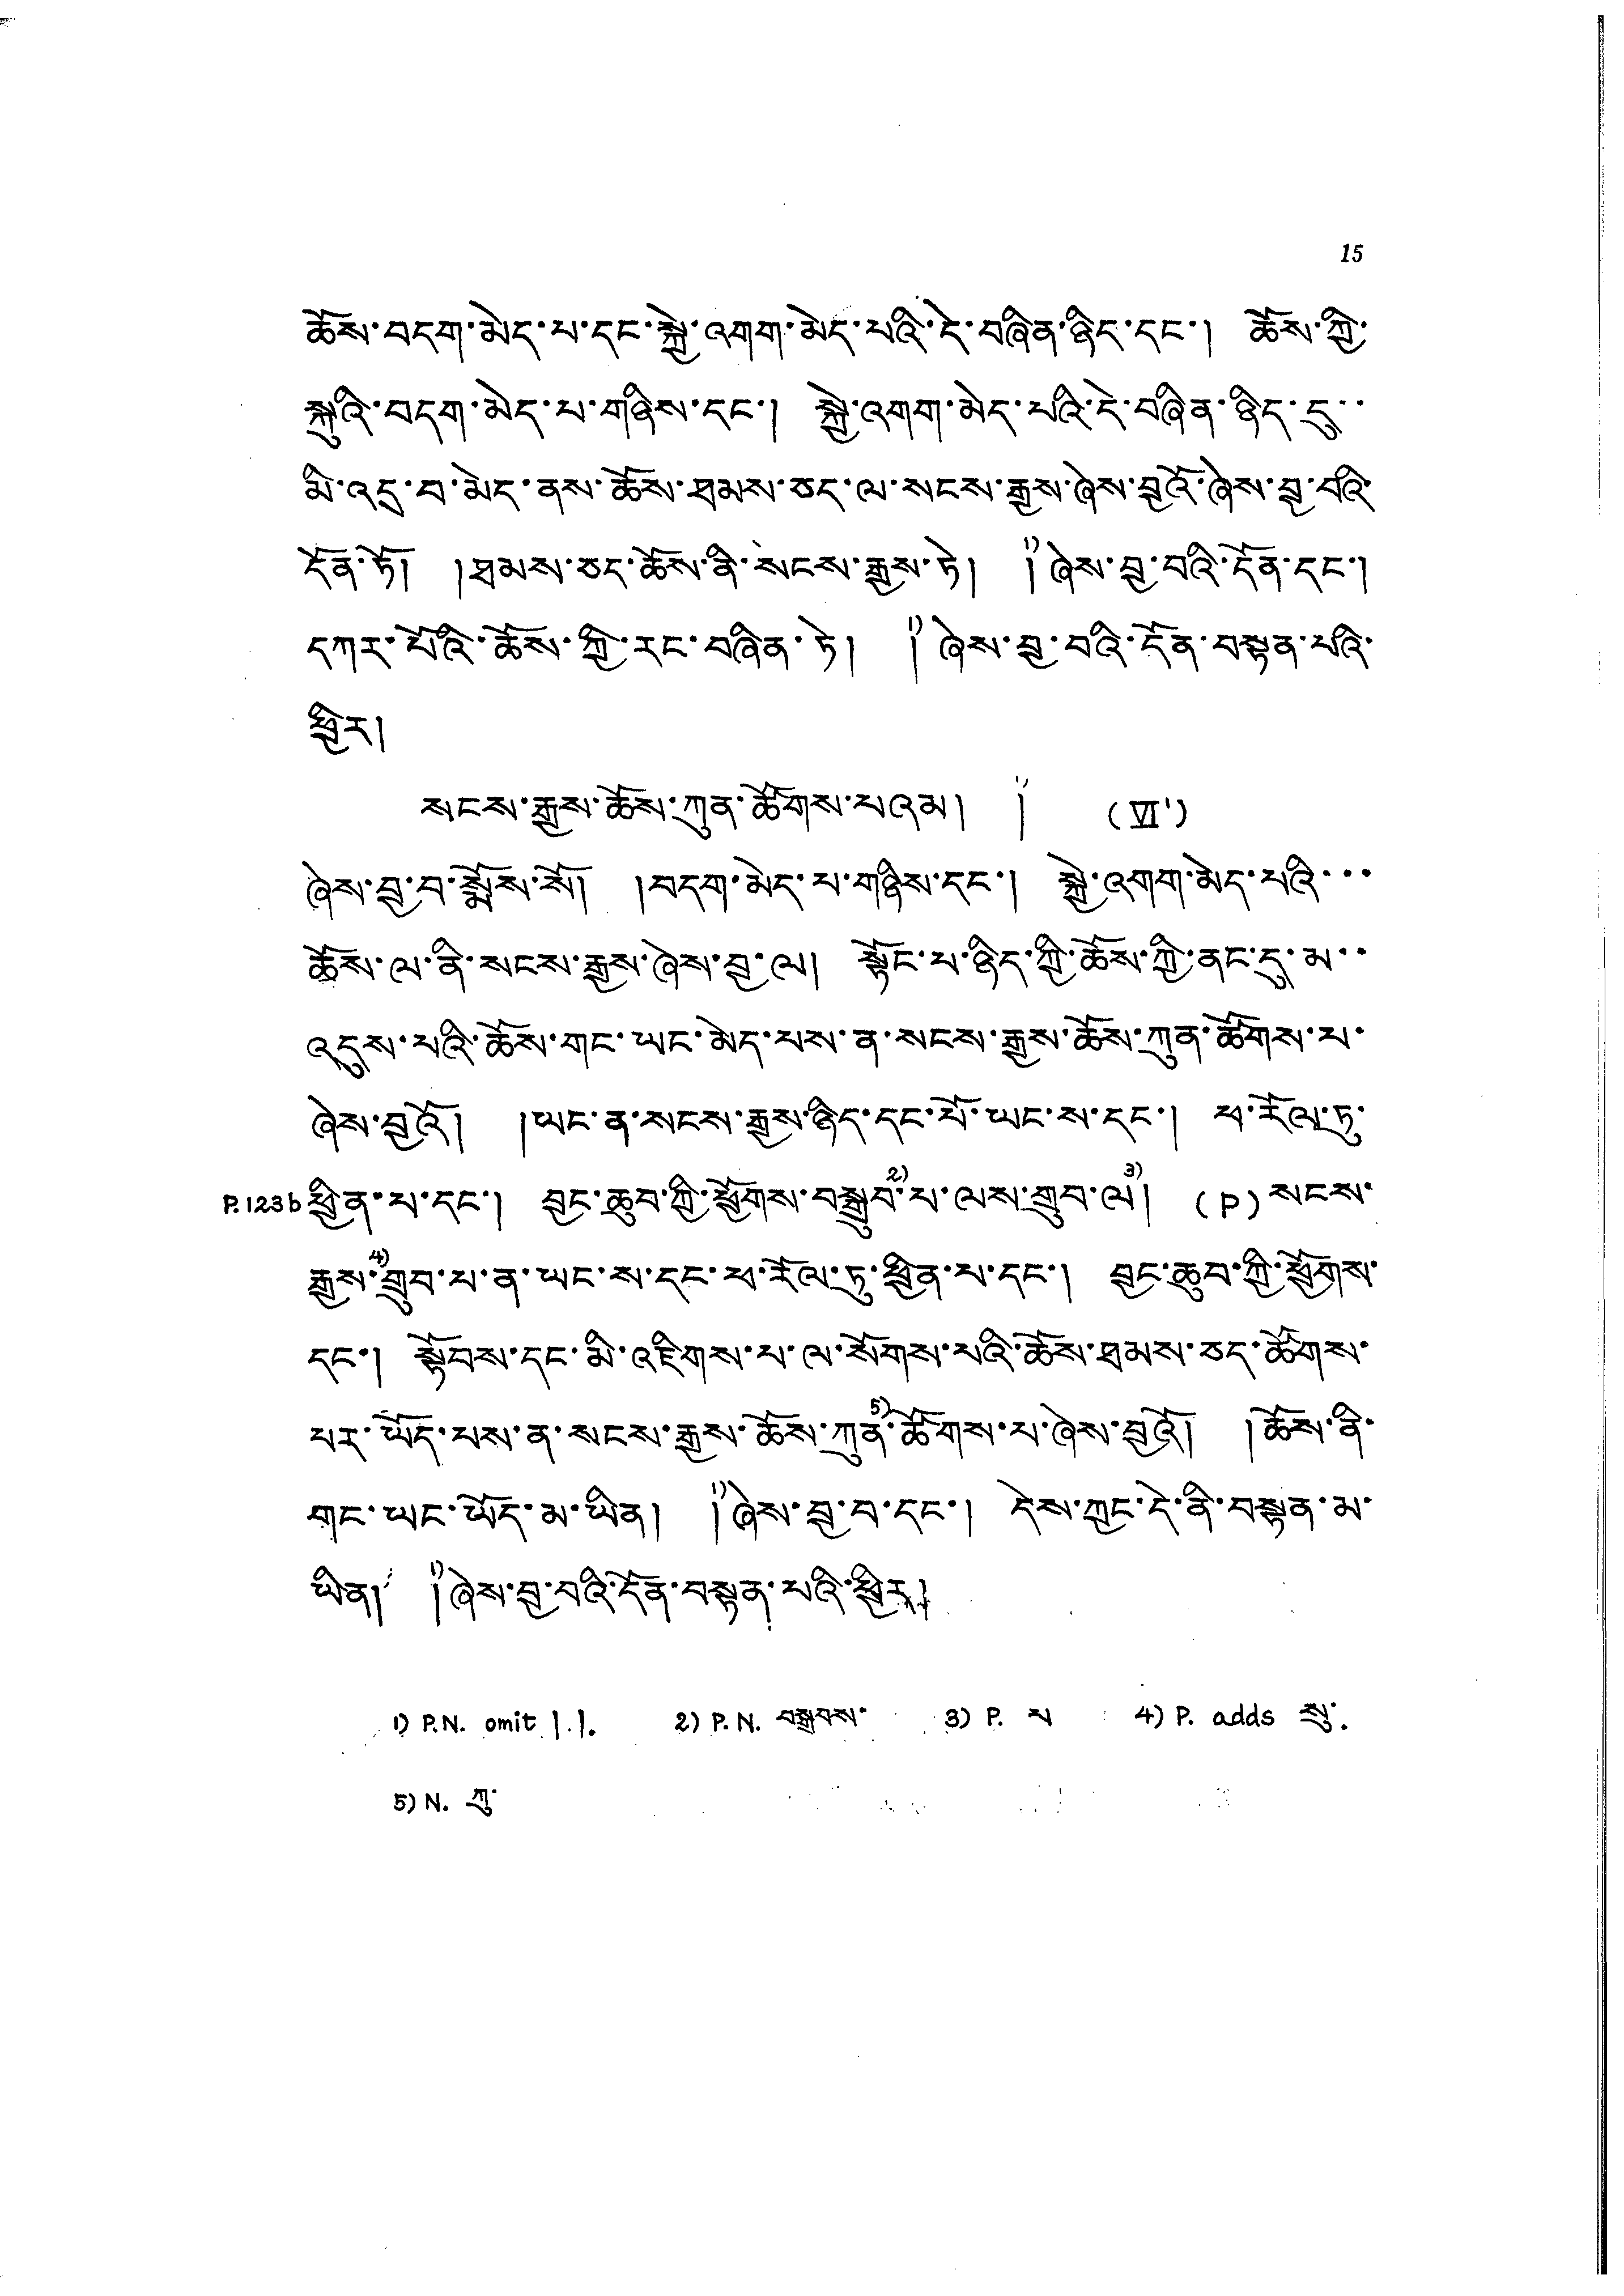 15
ཆོས་བདག་མེད་པ་དང་སྐྱེ་འགག་མེད་པའི་དེ་བཞིན་ཉིད་དང་། ཆོས་ཀྱི་
སྐུའི་བདག་མེད་པ་གཉིས་དང་། སྐྱེ་འགག་མེད་པའི་དེ་བཞིན་ཉིད་དུ་་
མི་འདྲ་བ་མེད་ནས་ཆོས་ཐམས་ཅད་ལ་སངས་རྒྱས་ཞེས་བྱའོ་ཞེས་བྱ་བའི་
དོན་ཏོ། །ཐམས་ཅད་ཆོས་ནི་སངས་རྒྱས་ཏེ། །1) ཞེས་བྱ་བའི་དོན་དང་།
དཀར་པོའི་ཆོས་ཀྱི་རང་བཞིན་ཏེ། །1) ཞེས་བྱ་བའི་དོན་བསྟན་པའི་
ཕྱིར།
སངས་རྒྱས་ཆོས་ཀུན་ཚོགས་པའམ། །1) (VI')
ཞེས་བྱ་བ་སྨོས་སོ། །བདག་མེད་པ་གཉིས་དང་། སྐྱེ་འགག་མེད་པའི་་་
ཆོས་ལ་ནི་སངས་རྒྱས་ཞེས་བྱ་ལ། སྟོང་པ་ཉིད་ཀྱི་ཆོས་ཀྱི་ནང་དུ་མ་་
འདུས་པའི་ཆོས་གང་ཡང་མེད་པས་ན་སངས་རྒྱས་ཆོས་ཀུན་ཚོགས་པ་
ཞེས་བྱའོ། །ཡང་ན་སངས་རྒྱས་ཉིད་དང་པོ་ཡང་ས་དང་། ཕ་རོལ་ཏུ་
P.123b ཕྱིན་པ་དང་། བྱང་ཆུབ་ཀྱི་ཕྱོགས་བསྒྲུབ་2)པ་ལས་གྲུབ་ལ3)། (P) སངས་
རྒྱས་4)གྲུབ་པ་ན་ཡང་ས་དང་ཕ་རོལ་ཏུ་ཕྱིན་པ་དང་། བྱང་ཆུབ་ཀྱི་ཕྱོགས་
དང་། སྟོབས་དང་མི་འཇིགས་པ་ལ་སོགས་པའི་ཆོས་ཐམས་ཅད་ཚོགས་
པར་ཡོད་པས་ན་སངས་རྒྱས་ཆོས་ཀུན5)་ཚོགས་པ་ཞེས་བྱའོ། །ཆོས་ནི་
གང་ཡང་ཡོད་མ་ཡིན། །1) ཞེས་བྱ་བ་དང་། དེས་ཀྱང་དེ་ནི་བསྟན་མ་
ཡིན། །1) ཞེས་བྱ་བའི་དོན་བསྟན་པའི་ཕྱིར།
1) P.N. omit །.།. 2) P.N. བསྒྲབས་ 3) P. པ 4) P. adds སུ་.
5) N. ཀུ་